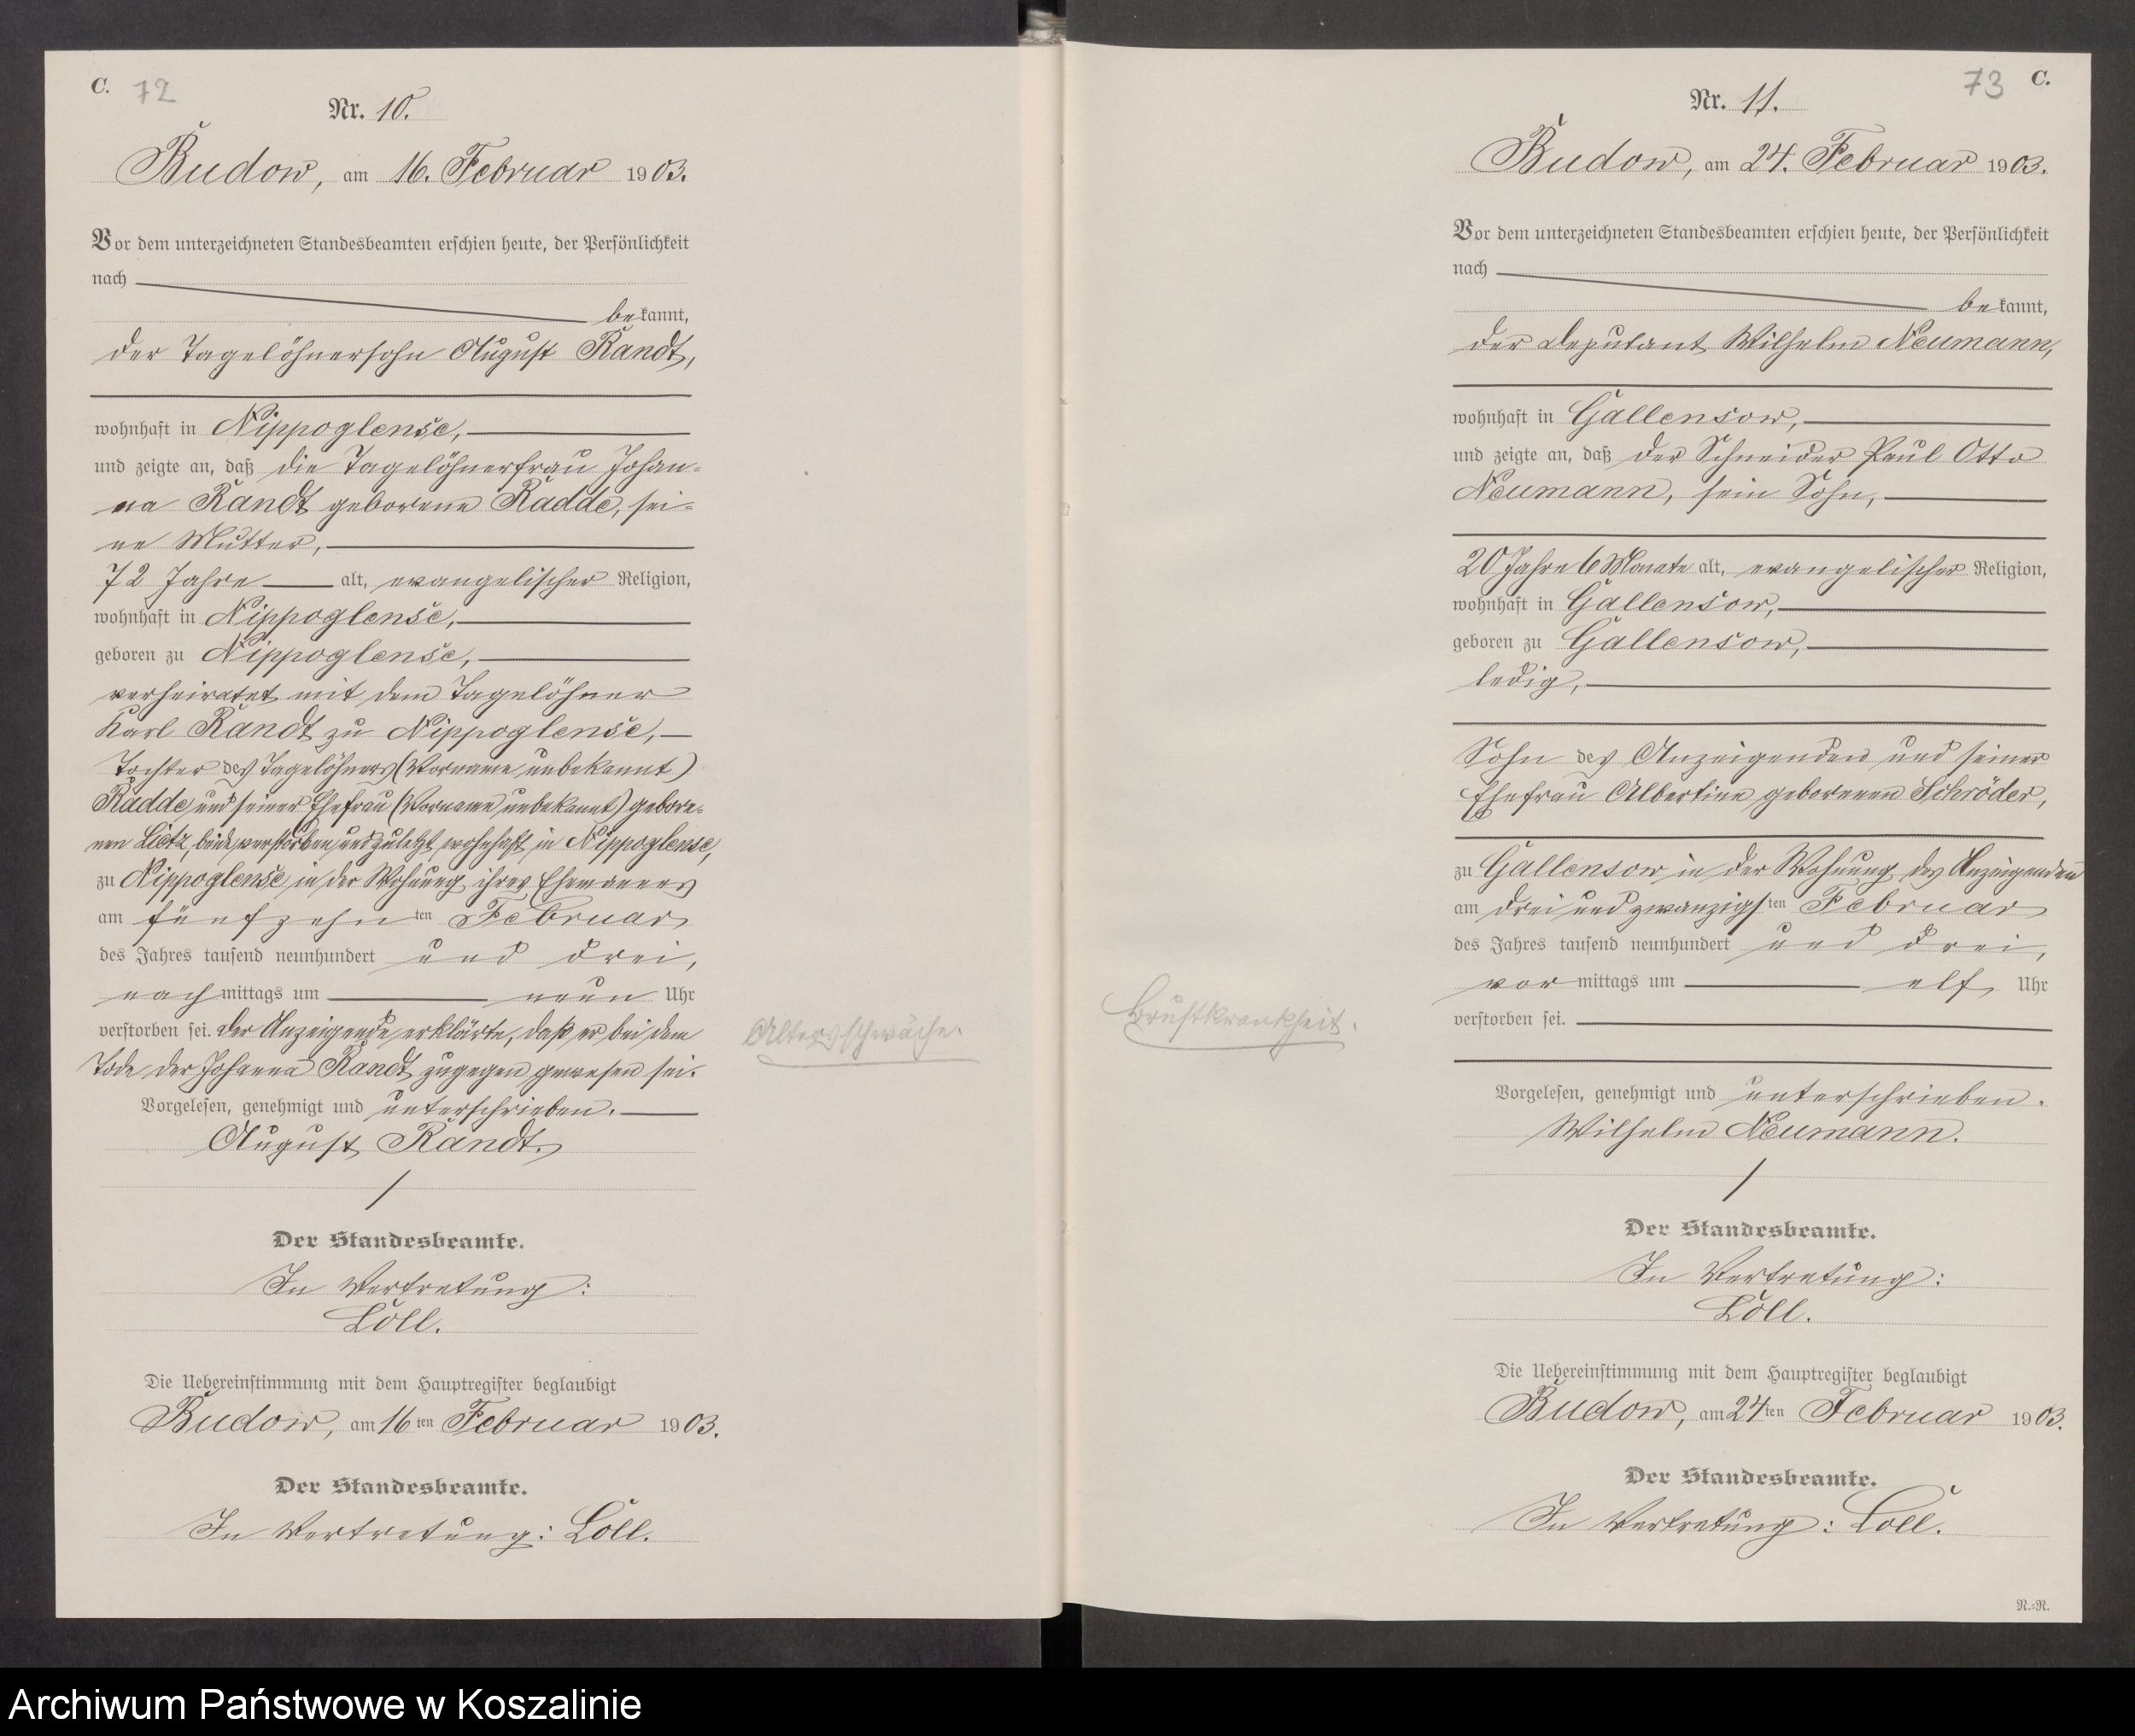 C. 72
Nr. 10.
Budow, am 16. Februar 1903.
Vor dem unterzeichneten Standesbeamten erschien heute, der Persönlichkeit
nach
bekannt,
der Tagelöhnersohn August Randt,
wohnhaft in Nippoglense,
und zeigte an, daß die Tagelöhnerfrau Johan=
na Randt geborene Radde, sei=
ne Mutter,
72 Jahre alt, evangelischer Religion,
wohnhaft in Nippoglense,
geboren zu Nippoglense,
verheiratet mit dem Tagelöhner
Karl Randt zu Nippoglense,
Tochter des Tagelöhners (Vorname unbekannt)
Radde und seiner Ehefrau (Vorname unbekannt) gebore=
nen Lietz, beide verstorben und zuletzt wohnhaft in Nippoglense,
zu Nippoglense in der Wohnung ihres Ehemannes
am fünfzehnten Februar
des Jahres tausend neunhundert und drei,
nachmittags um neun Uhr
verstorben sei. Der Anzeigende erklärte, daß er bei dem
Tode der Johanna Randt zugegen gewesen sei.
Altersschwäche.
Vorgelesen, genehmigt und unterschrieben.
August Randt.
Der Standesbeamte.
In Vertretung:
Loll.
Die Uebereinstimmung mit dem Hauptregister beglaubigt
Budow, am 16ten Februar 1903.
Der Standesbeamte.
In Vertretung: Loll.
73 C.
Nr. 11.
Budow, am 24. Februar 1903.
Vor dem unterzeichneten Standesbeamten erschien heute, der Persönlichkeit
nach
bekannt,
der Deputant Wilhelm Neumann,
wohnhaft in Gallensow,
und zeigte an, daß der Schneider Paul Otto
Neumann, sein Sohn,
20 Jahre 6 Monate alt, evangelischer Religion,
wohnhaft in Gallensow,
geboren zu Gallensow,
ledig,
Sohn des Anzeigenden und seiner
Ehefrau Albertine geborenen Schröder,
zu Gallensow in der Wohnung des Anzeigenden
am dreiundzwanzigsten Februar
des Jahres tausend neunhundert und drei,
vormittags um elf Uhr
verstorben sei.
Brustkrankheit.
Vorgelesen, genehmigt und unterschrieben.
Wilhelm Neumann.
Der Standesbeamte.
In Vertretung:
Loll.
Die Uebereinstimmung mit dem Hauptregister beglaubigt
Budow, am 24ten Februar 1903.
Der Standesbeamte.
In Vertretung: Loll.
N.=N.
Archiwum Państwowe w Koszalinie